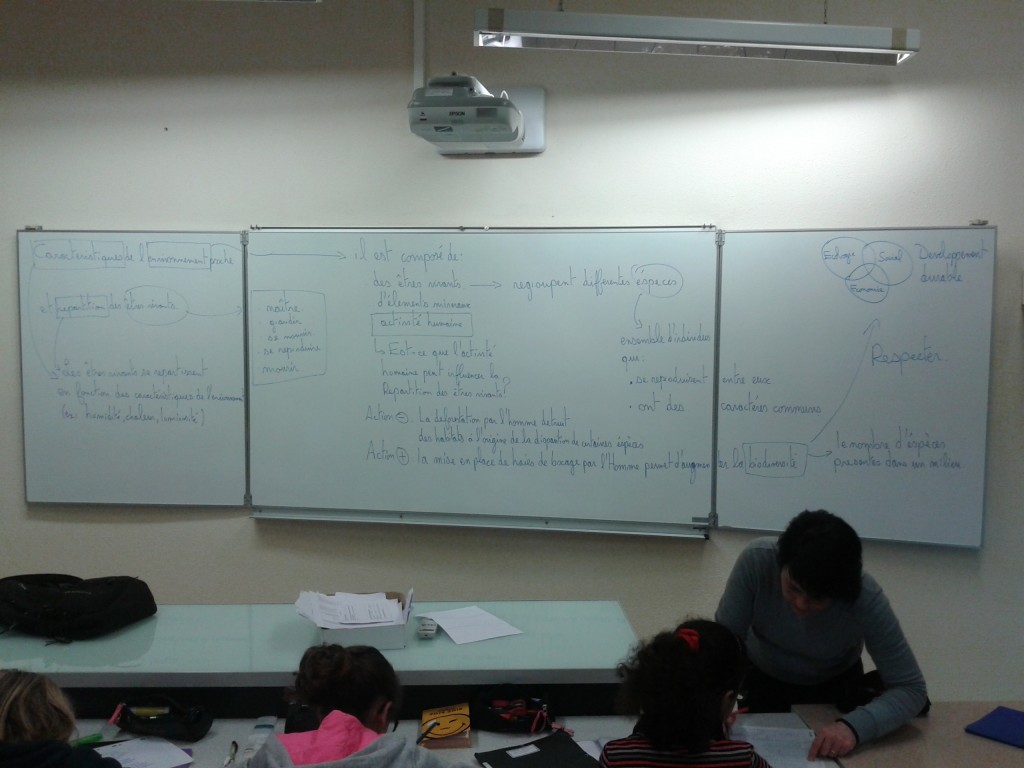 EPSON
Caractéristiques de l'environnement proche
et répartition des êtres vivants.
Les êtres vivants se repartissent
en fonction des caractéristiques de l'environnement
(ex: humidité, chaleur, luminosité)
naître
. grandir
se nourrir
. se reproduire
mourir
il est composé de:
des êtres vivants → regroupent différentes espèces
d'éléments minéraux
activité humaine
↳ Est-ce que l'activité
humaine peut influencer la
Repartition des êtres vivants?
Action ⊖ La deforestation par l'homme detruit
des habitats à l'origine de la disparition de certaines espèces
Action ⊕ la mise en place de haies de bocage par l'Homme permet d'augmenter la biodiversité → le nombre d'espèces
présentes dans un milieu
ensemble d'individus
que.
. se reproduisent entre eux
. ont des caractères communs
Ecologie
Social
Economie
Developpement
durable
Respecter